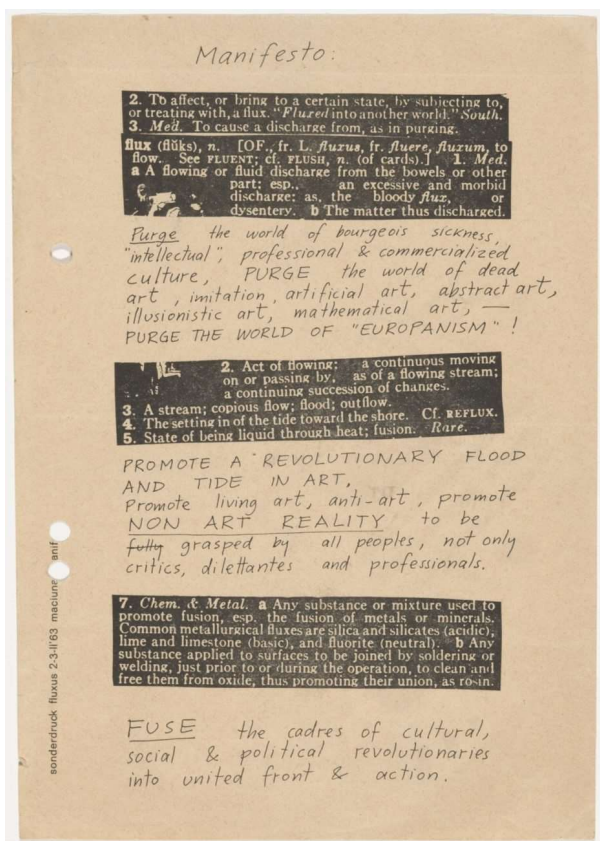 Manifesto:
2. To affect, or bring to a certain state, by subjecting to,
or treating with, a flux. "Fluxed into another world." South.
3. Med. To cause a discharge from, as in purging.
flux (flŭks), n. [OF., fr. L. fluxus, fr. fluere, fluxum, to
flow. See FLUENT; cf. FLUSH, n. (of cards).] 1. Med.
a A flowing or fluid discharge from the bowels or other
part; esp., an excessive and morbid
discharge: as, the bloody flux, or
dysentery. b The matter thus discharged.
Purge the world of bourgeois sickness,
"intellectual", professional & commercialized
culture, PURGE the world of dead
art, imitation, artificial art, abstract art,
illusionistic art, mathematical art, —
PURGE THE WORLD OF "EUROPANISM"!
2. Act of flowing: a continuous moving
on or passing by, as of a flowing stream;
a continuing succession of changes.
3. A stream; copious flow; flood; outflow.
4. The setting in of the tide toward the shore. Cf. REFLUX.
5. State of being liquid through heat; fusion. Rare.
PROMOTE A REVOLUTIONARY FLOOD
AND TIDE IN ART,
Promote living art, anti-art, promote
NON ART REALITY to be
fully grasped by all peoples, not only
critics, dilettantes and professionals.
7. Chem. & Metal. a Any substance or mixture used to
promote fusion, esp. the fusion of metals or minerals.
Common metallurgical fluxes are silica and silicates (acidic),
lime and limestone (basic), and fluorite (neutral). b Any
substance applied to surfaces to be joined by soldering or
welding, just prior to or during the operation, to clean and
free them from oxide, thus promoting their union, as rosin.
FUSE the cadres of cultural,
social & political revolutionaries
into united front & action.
sonderdruck fluxus 2-3-II'63 maciuna anif